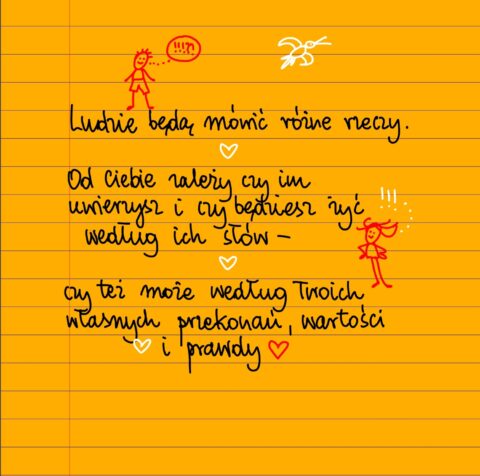 !!!?!
Ludzie będą mówić różne rzeczy.
Od Ciebie zależy czy im
uwierzysz i czy będziesz żyć
według ich słów –
!!!
czy też może według Twoich
własnych przekonań, wartości
i prawdy